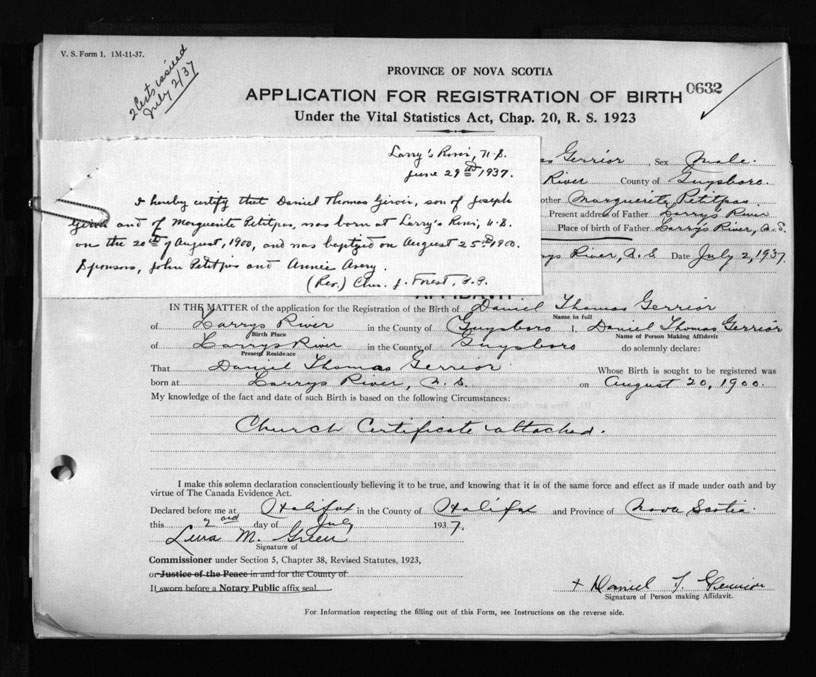 V. S. Form 1. 1M-11-37.
2 Certs issued
July 2/37
PROVINCE OF NOVA SCOTIA
APPLICATION FOR REGISTRATION OF BIRTH 0632
Under the Vital Statistics Act, Chap. 20, R. S. 1923
Larry's River, N.S.
June 29th 1937.
I hereby certify that Daniel Thomas Girroir, son of Joseph
Girroir and of Marguerite Petitpas, was born at Larry's River, N.S.
on the 20th of August, 1900, and was baptized on August 25th 1900.
Sponsors, John Petitpas and Annie Avery.
(Rev.) Chas. J. Forest, P.P.
as Gerrior, Sex Male.
River County of Guysboro.
other Marguerite Petitpas.
Present address of Father Larrys River
Place of birth of Father Larrys River, N.S.
ys River, N.S. Date July 2, 1937
AFFIDAVIT
IN THE MATTER of the application for the Registration of the Birth of Daniel Thomas Gerrior
Name in full
of Larrys River in the County of Guysboro I, Daniel Thomas Gerrior
Birth Place Name of Person Making Affidavit
of Larrys River in the County of Guysboro do solemnly declare:
Present Residence
That Daniel Thomas Gerrior Whose Birth is sought to be registered was
born at Larrys River, N.S. on August 20, 1900.
My knowledge of the fact and date of such Birth is based on the following Circumstances:
Church Certificate attached.
I make this solemn declaration conscientiously believing it to be true, and knowing that it is of the same force and effect as if made under oath and by
virtue of The Canada Evidence Act.
Declared before me at Halifax in the County of Halifax and Province of Nova Scotia.
this 2nd day of July 1937.
Lena M. Green
Signature of
Commissioner under Section 5, Chapter 38, Revised Statutes, 1923,
or Justice of the Peace in and for the County of
If sworn before a Notary Public affix seal.
+ Daniel T. Gerrior
Signature of Person making Affidavit.
For Information respecting the filling out of this Form, see Instructions on the reverse side.